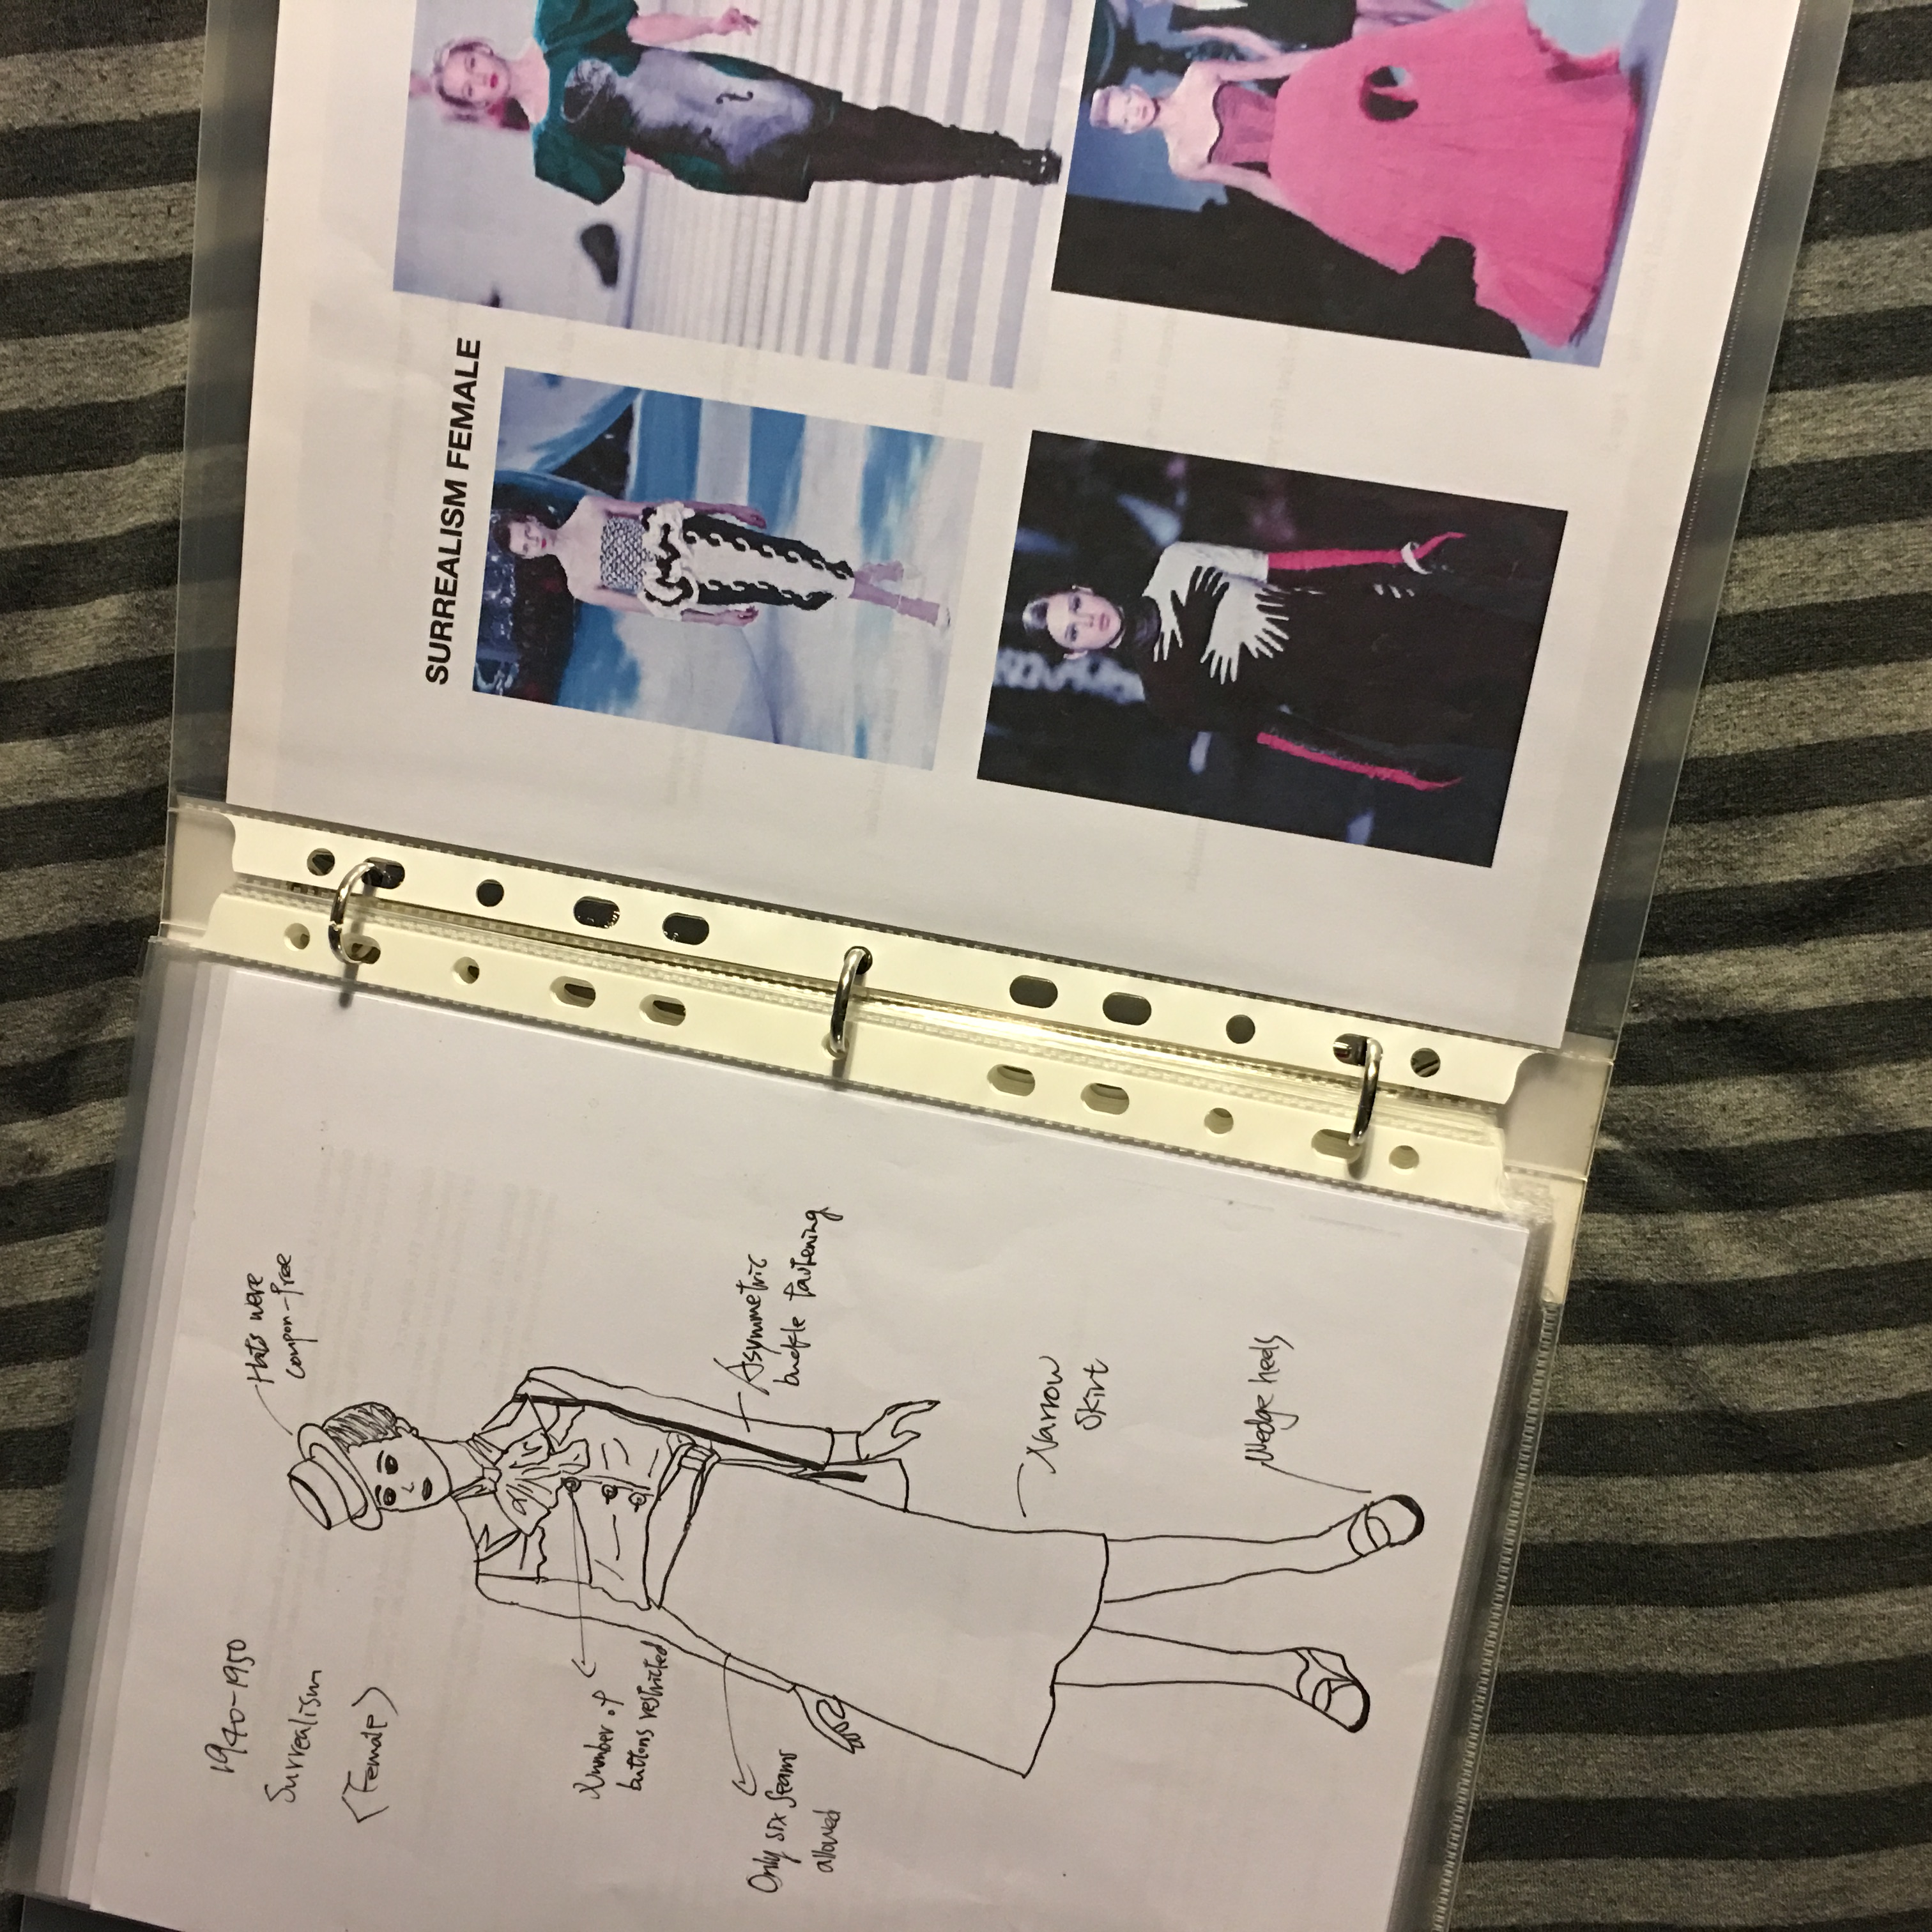 1940-1950
Surrealism
<Female>
Hats were
coupon-free
Number of
buttons restricted
Only six seams
allowed
Asymmetric
buckle fastening
Narrow
Skirt
Wedge heels
SURREALISM FEMALE